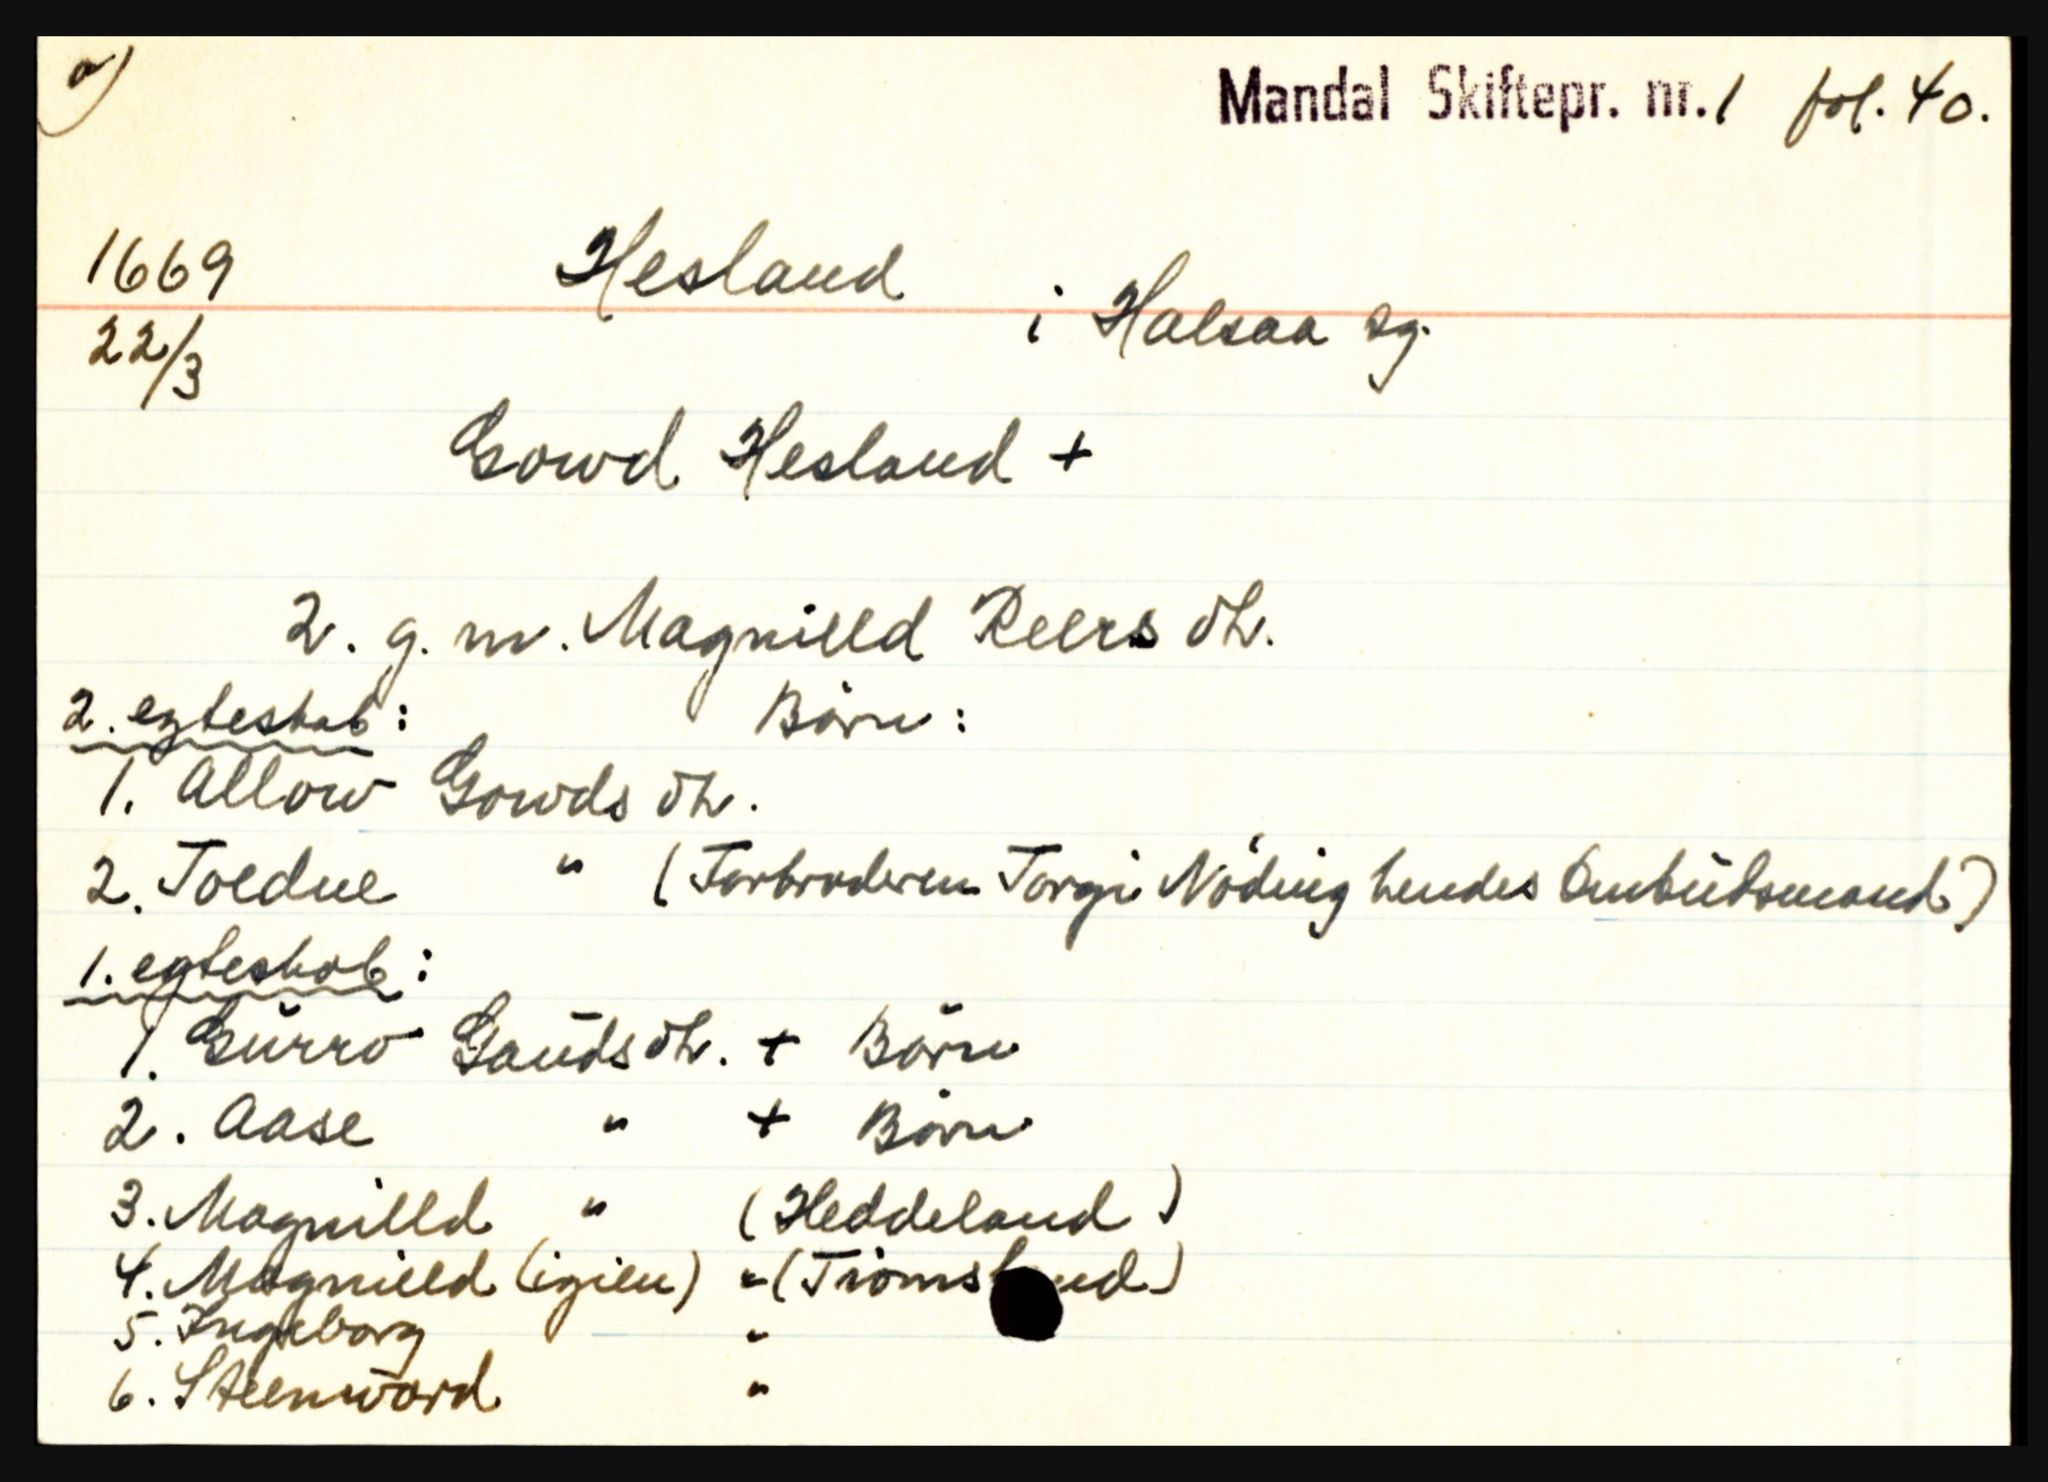 a)
Mandal Skiftepr. nr. 1 fol. 40.
1669 Hesland
22/3 i Halsaa sg.
Gowd Hesland +
2. g. m. Magnilld Peers dtr.
2. egteskab: Börn:
1. Allow Gowds dtr.
2. Toedne " (Farbroderen Torgi Nöding hendes Ombudsmand)
1. egteskab:
1. Gurro Gauds dtr. + Börn
2. Aase " + Börn
3. Magnilld " (Heddeland)
4. Magnield (igien) " (Tromsland)
5. Ingeborg "
6. Steenword "